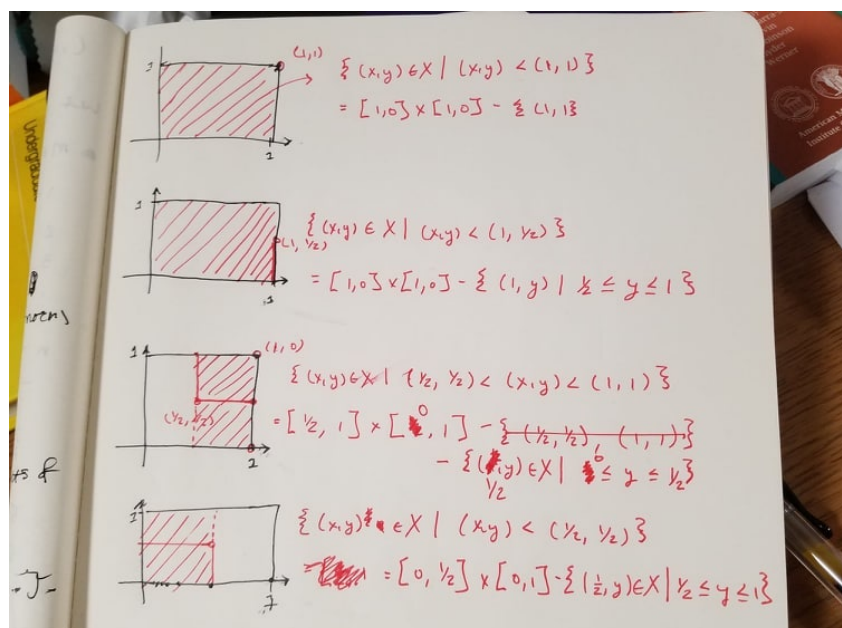 1
(1,1)
1
{ (x,y) ∈ X | (x,y) < (1,1) }
= [1,0] × [1,0] - { (1,1}
1
(1, 1/2)
1
{ (x,y) ∈ X | (x,y) < (1, 1/2) }
= [1,0] × [1,0] - { (1,y) | 1/2 ≤ y ≤ 1 }
1
(1,0)
(1/2, 1/2)
{ (x,y) ∈ X | (1/2, 1/2) < (x,y) < (1,1) }
= [1/2, 1] × [0, 1] - { (1/2, 1/2), (1,1) }
- { (1/2, y) ∈ X | 0 ≤ y ≤ 1/2 }
1
{ (x,y) ∈ X | (x,y) < (1/2, 1/2) }
= [0, 1/2] × [0,1] - { (1/2, y) ∈ X | 1/2 ≤ y ≤ 1 }
Undergradua
Werner
American M
Institute